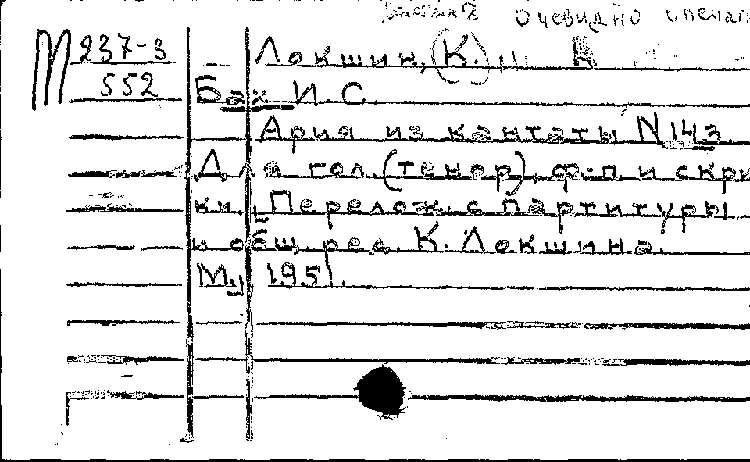 очевидно опечат
М 237-3 Локшин, (К.)
552 Бах И. С.
Ария из кантаты N 143
Для гол. (тенор), ф-п и скрип
ки. Перелож. с партитуры
и общ. ред. К. Локшина.
М., 1951.